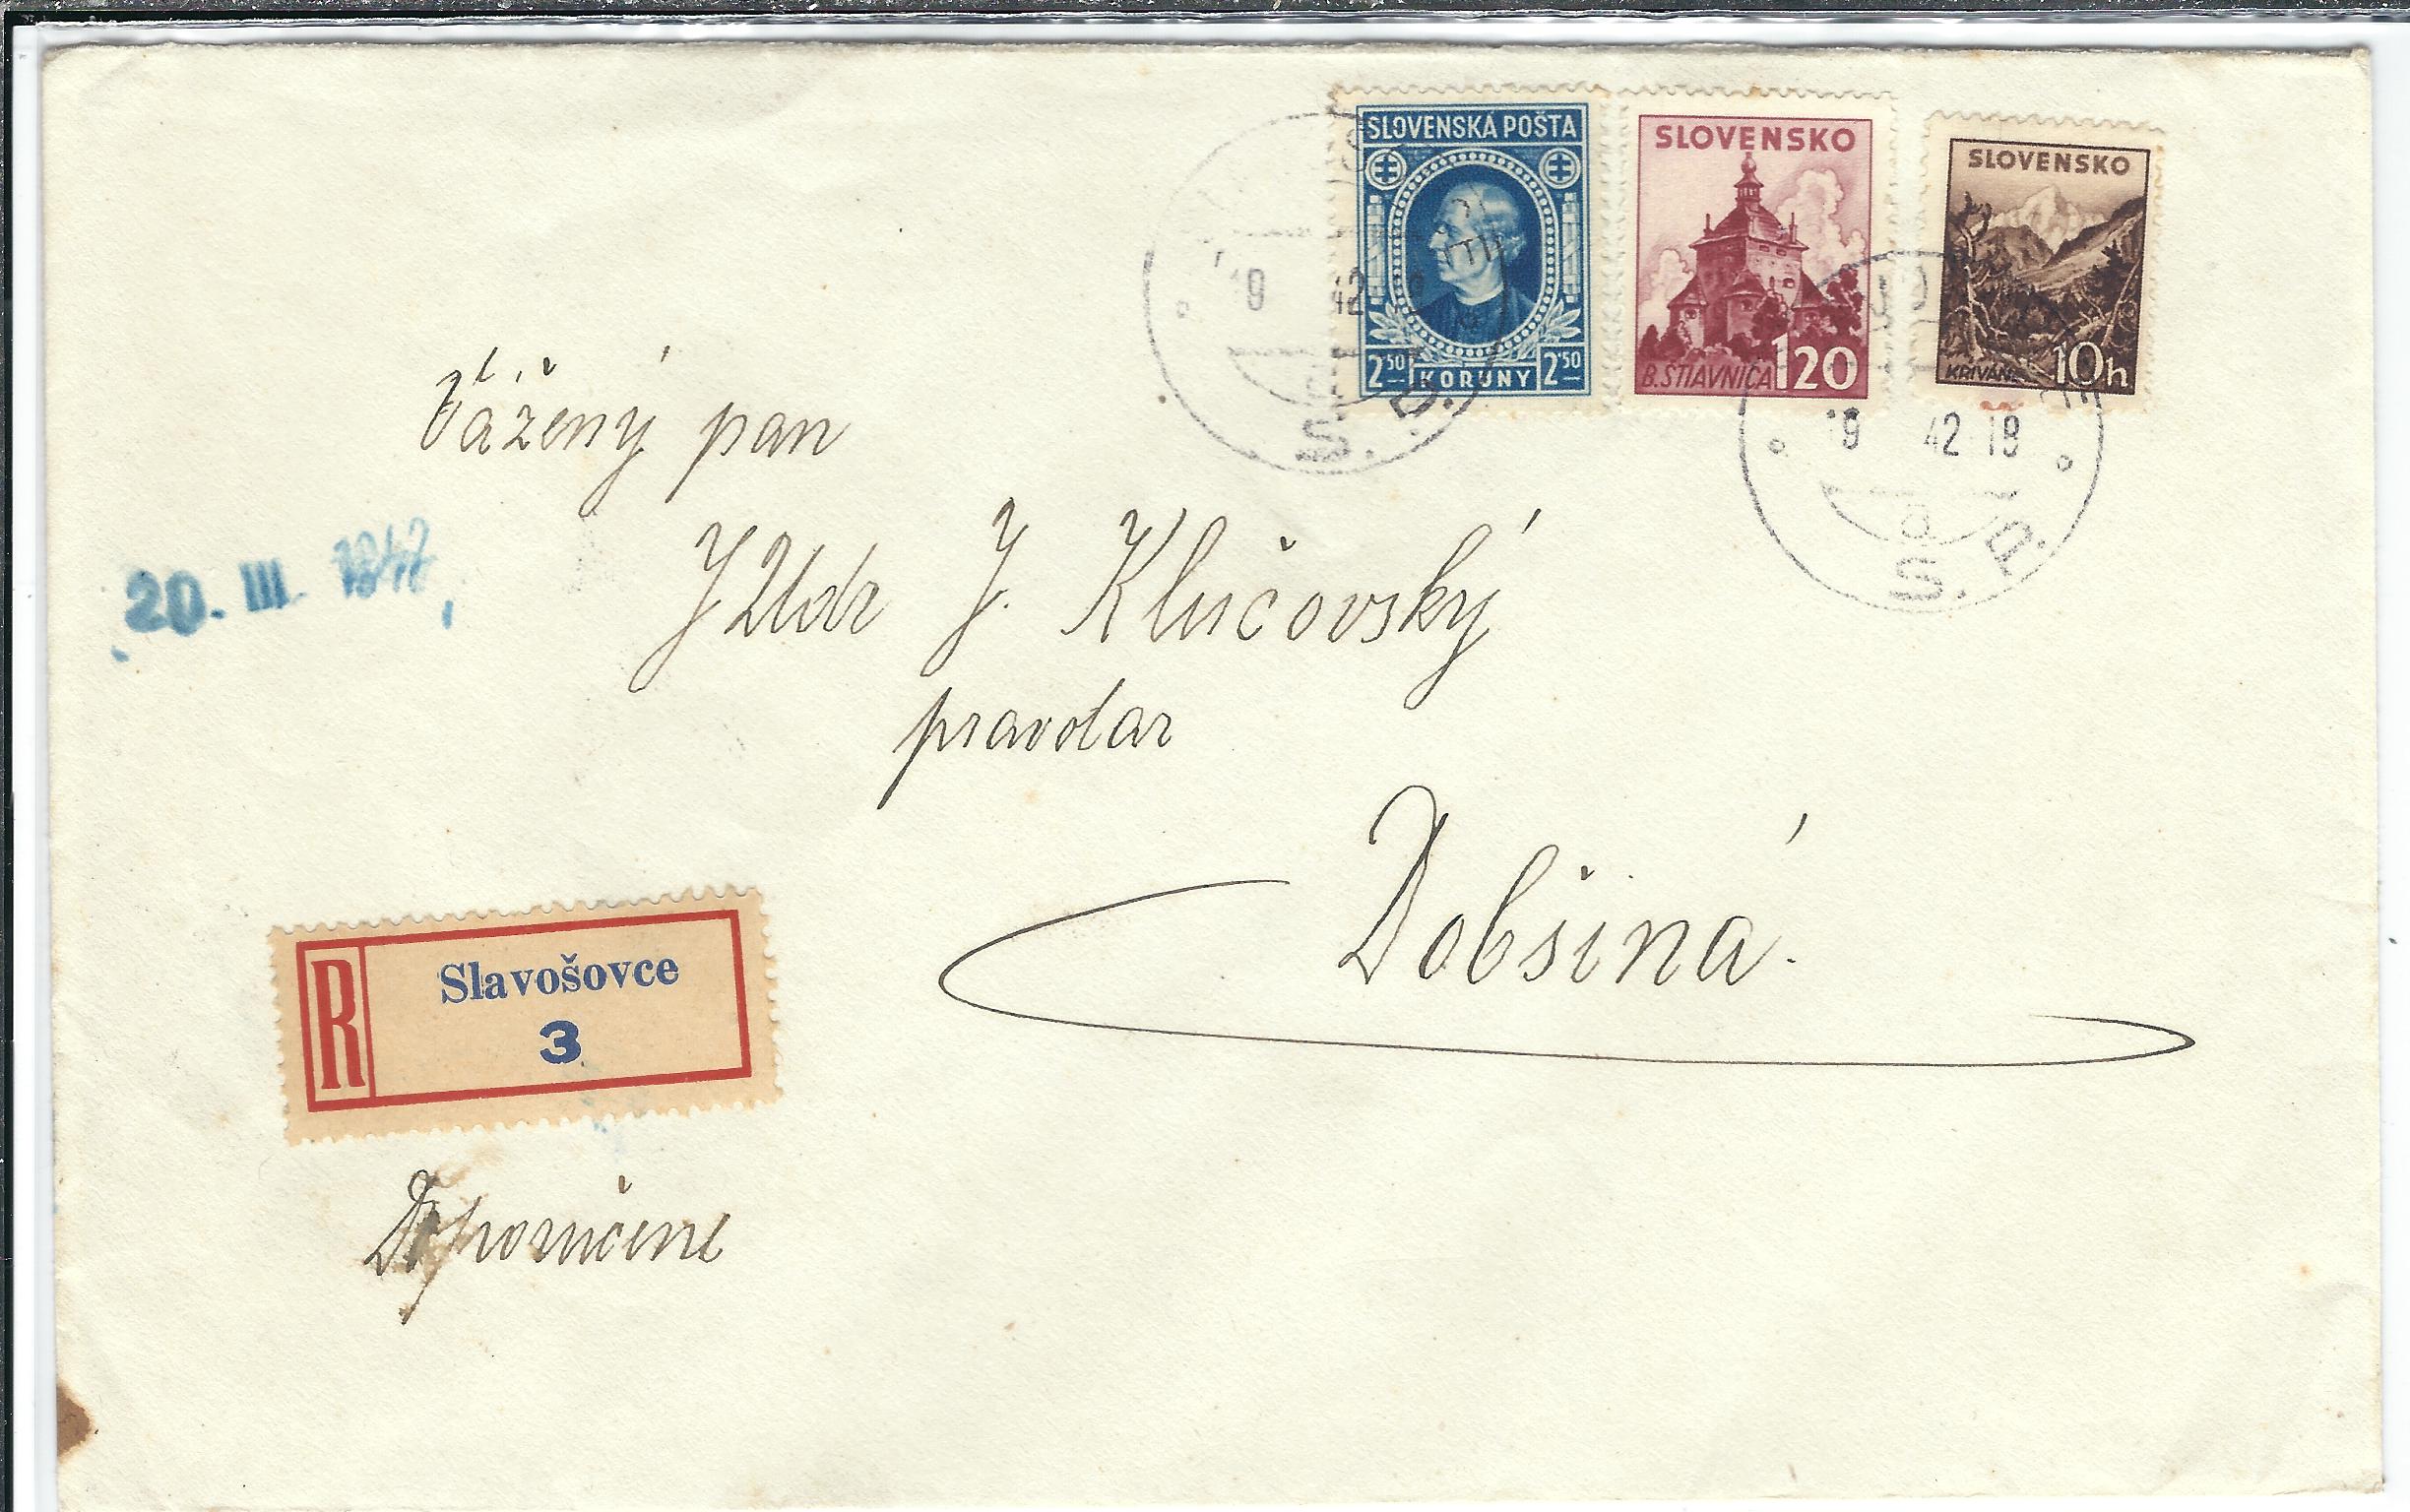 SLOVENSKÁ POŠTA
2 50 KORUNY 2 50
SLOVENSKO
B. ŠTIAVNICA 120
SLOVENSKO
KRIVÁŇ 10h
19 42
19 42 18
S. P.
S. P.
Vážený pan
JUdr J. Klučovský
pravotar
Dobšiná.
20. III. 1942
R
Slavošovce
3
Doporučene